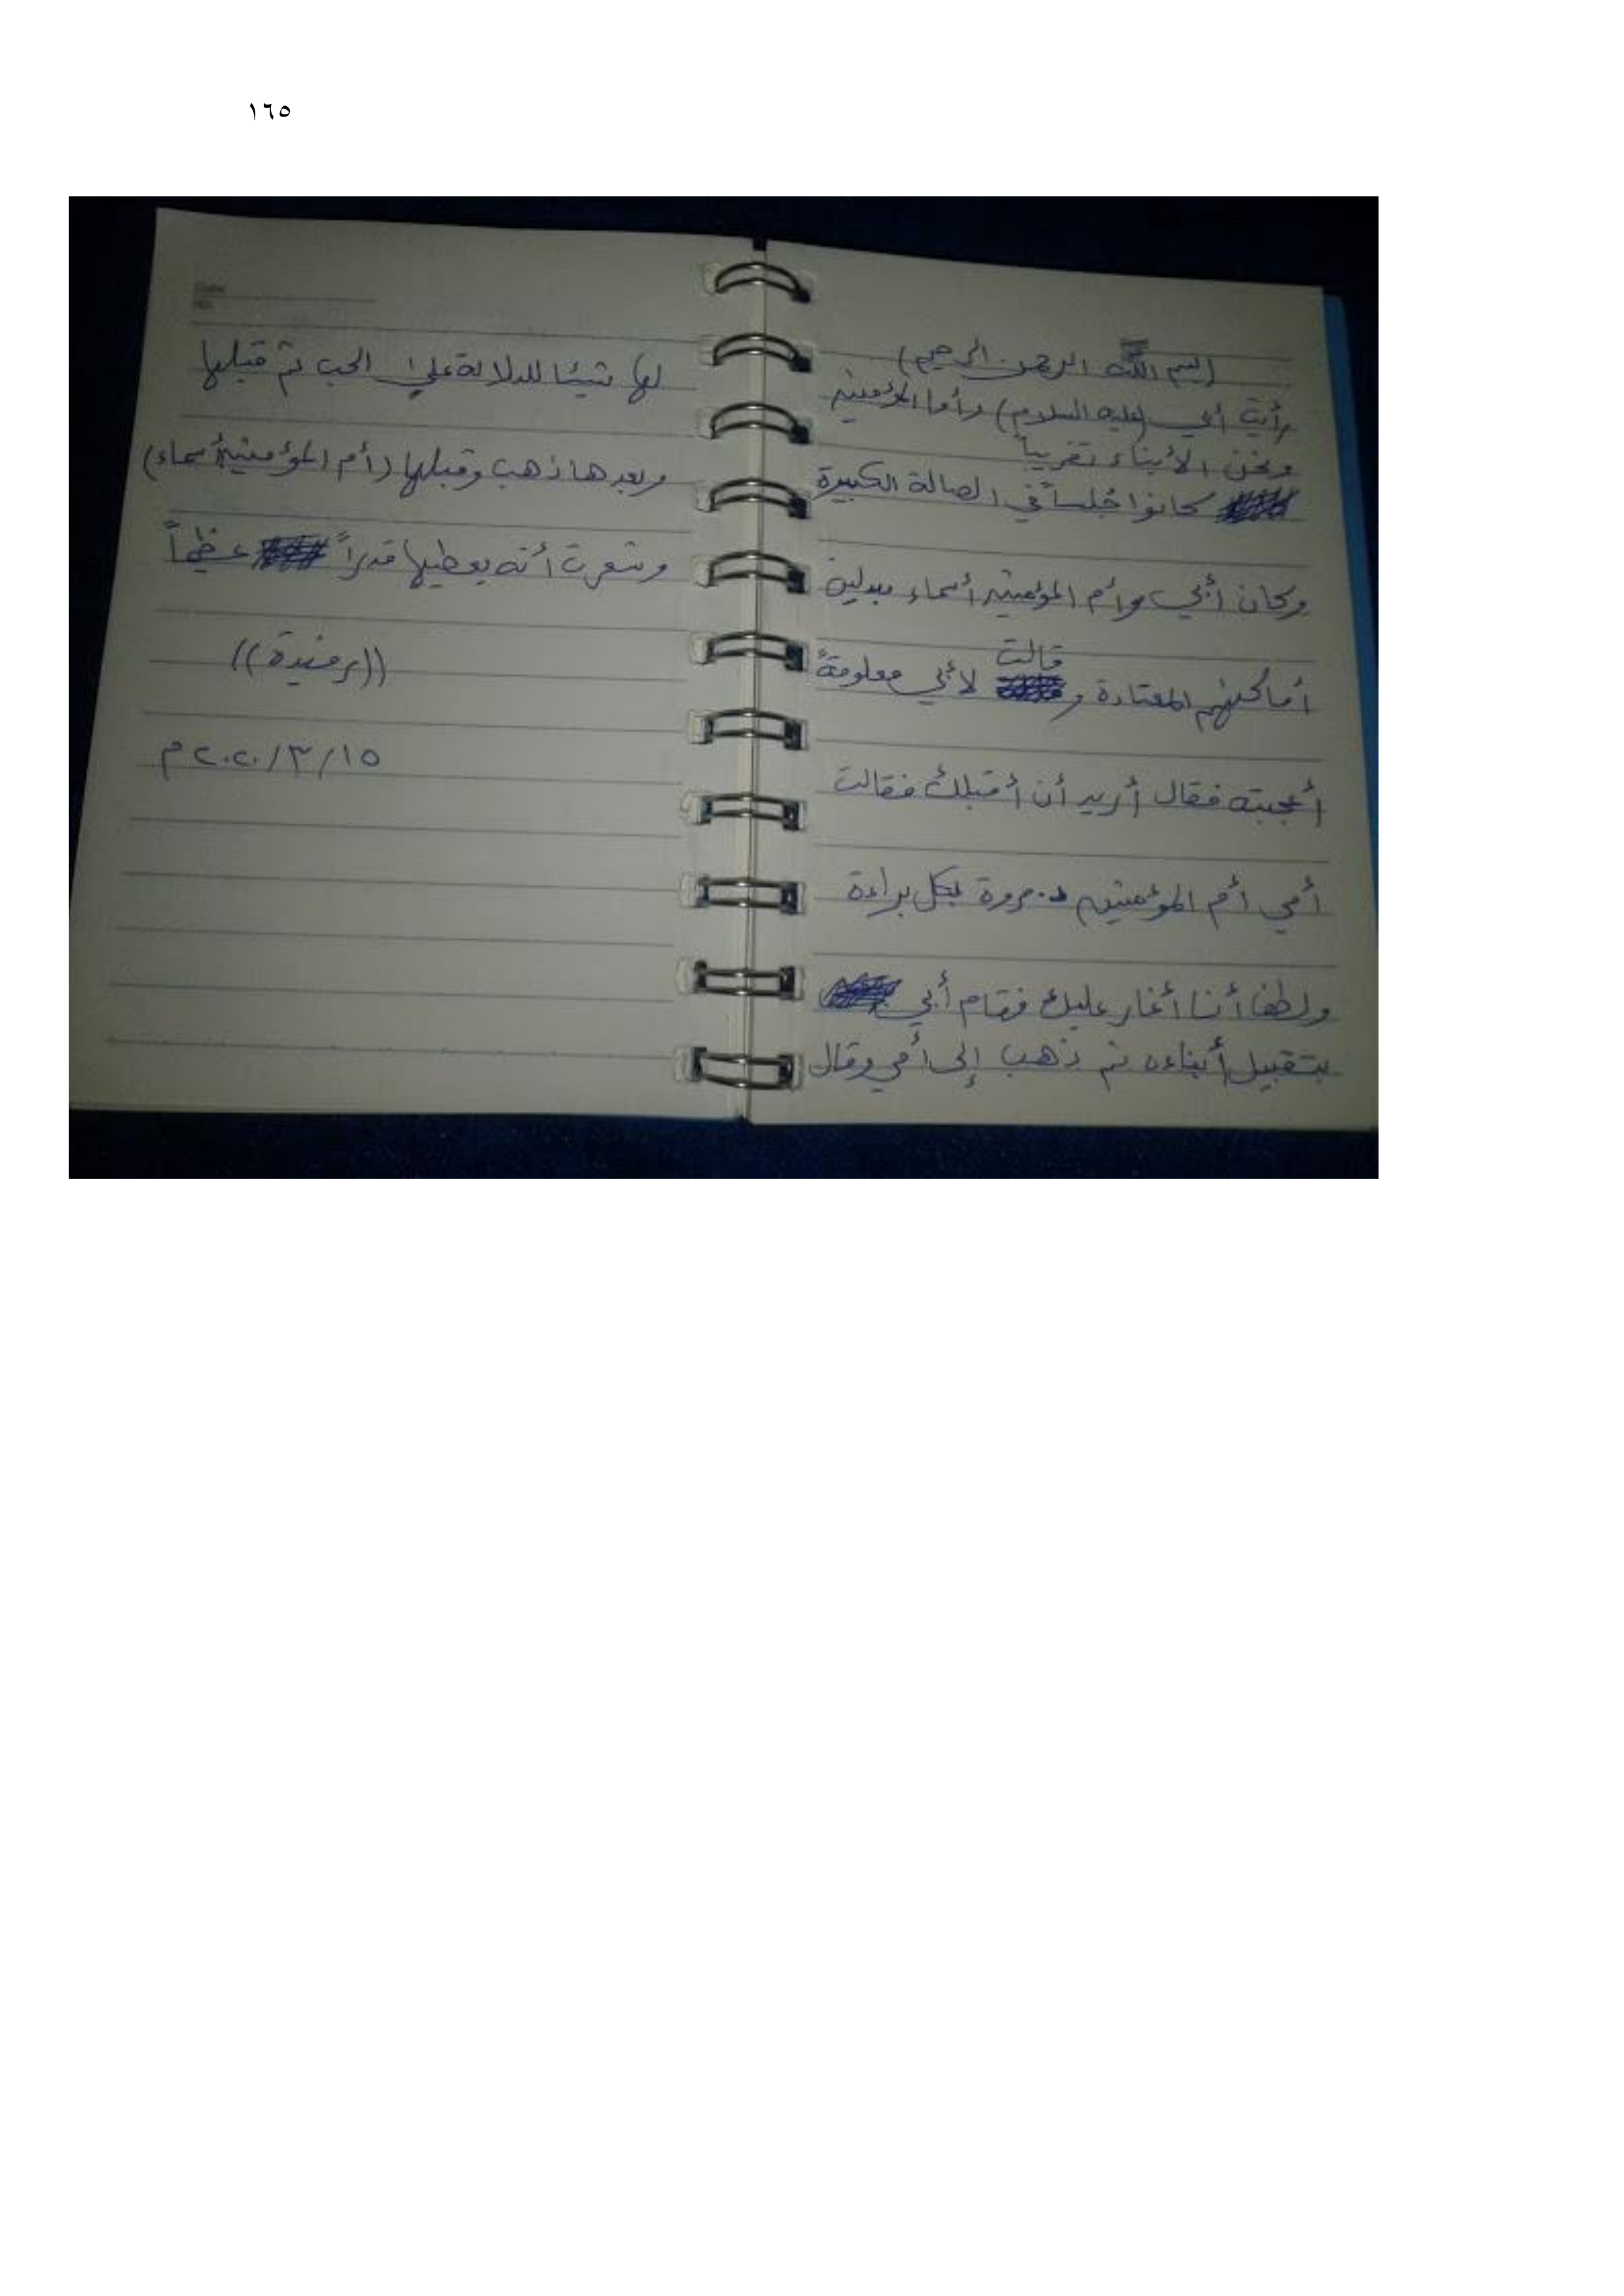 ١٦٥
(بسم الله الرحمن الرحيم)
رأيت أبي (عليه السلام) وأما المؤمنين
ونحن الأبناء تقريباً
كانوا جُلساً في الصالة الكبيرة
وكان أبي وأم المؤمنين أسماء
أماكنهم المعتادة و قالت لأبي معلومةً
أعجبته فقال أريد أن أقبلكِ فقالت
أمي أم المؤمنين د. مروة بكل براءة
ولطف أنا أغار عليك فقام أبي
بتقبيل أبناءه ثم ذهب إلى أمي وقال
لها شيئا للدلالة على الحب ثم قبلها
وبعدها ذهب وقبلها (أم المؤمنين أسماء)
وشعرت أنه يعطيها قدراً عظيماً
((رفيدة))
١٥/٣/٢٠٢٠م